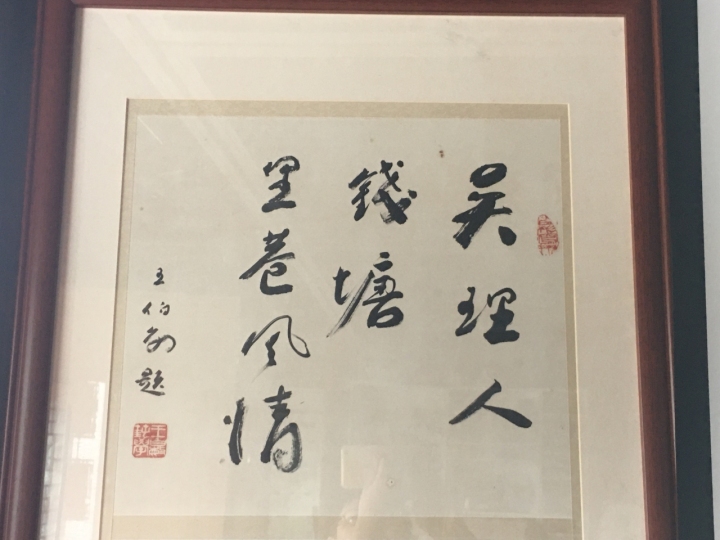 吴理人
錢塘
里巷风情
王伯敏题